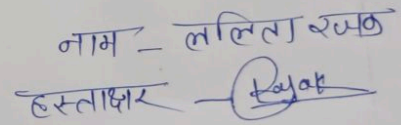 नाम - ललिता रजक
हस्ताक्षर - Rajak